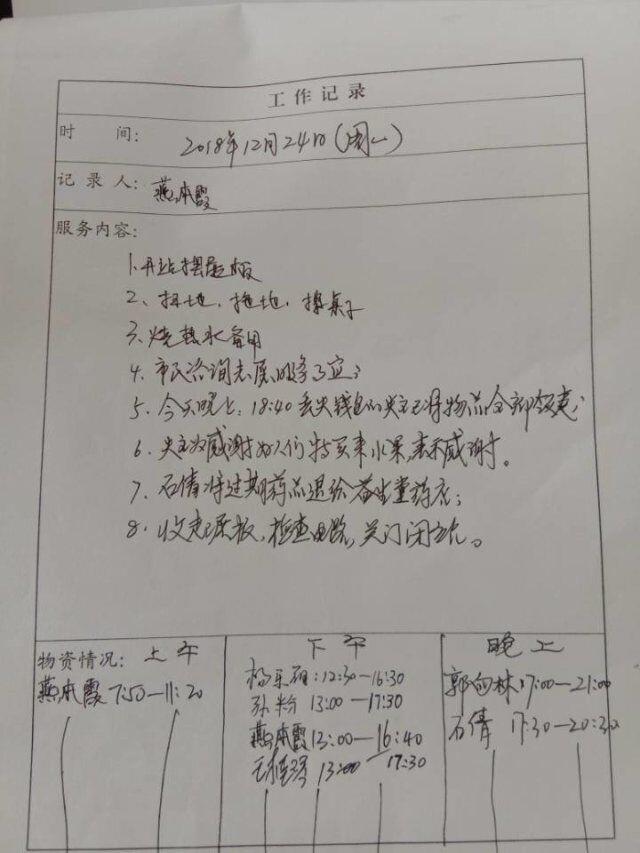 工作记录
时 间： 2018年12月24日（周一）
记录人： 燕本霞
服务内容：
1.开站摆展板
2、扫地、拖地、擦桌子
3.烧热水备用
4.市民咨询志愿服务
5.今天晚上:18:40丢失钱包的失主已将物品全部领走；
6.失主为感谢我们特买来水果,表示感谢。
7.石倩将过期药品退给益生堂药店；
8.收完展板,检查电路,关门闭站。
物资情况： 上午 下午 晚上
燕本霞 7:50—11:20
12:30—16:30
孙粉 13:00—17:30
燕本霞 13:00—16:40
13:00 17:30
郭向林 17:00—21:00
石倩 17:30—20:30